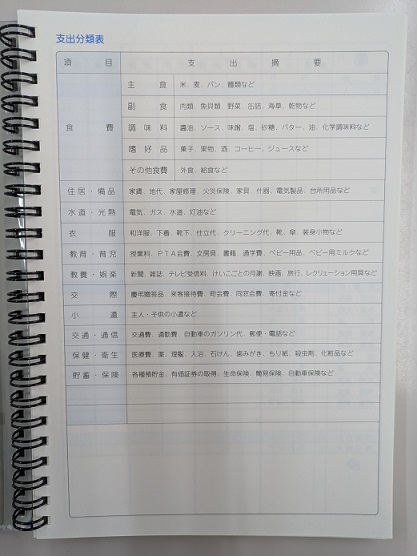 支出分類表
項目 支出摘要
食費 主食 米、麦、パン、麺類など
副食 肉類、魚貝類、野菜、缶詰、海草、乾物など
調味料 醤油、ソース、味噌、塩、砂糖、バター、油、化学調味料など
嗜好品 菓子、果物、酒、コーヒー、ジュースなど
その他食費 外食、給食など
住居・備品 家賃、地代、家屋修理、火災保険、家具、什器、電気製品、台所用品など
水道・光熱 電気、ガス、水道、灯油など
衣服 和洋服、下着、靴下、仕立代、クリーニング代、靴、傘、装身小物など
教育・育児 授業料、PTA会費、文房具、書籍、通学費、ベビー用品、ベビー用ミルクなど
教養・娯楽 新聞、雑誌、テレビ受信料、けいこごとの月謝、映画、旅行、レクリューション用具など
交際 慶弔贈答品、来客接待費、町会費、同窓会費、寄付金など
小遣 主人・子供の小遣など
交通・通信 交通費、通勤費、自動車のガソリン代、郵便・電話など
保健・衛生 医療費、薬、理髪、入浴、石けん、歯みがき、ちり紙、殺虫剤、化粧品など
貯蓄・保険 各種預貯金、有価証券の取得、生命保険、簡易保険、自動車保険など